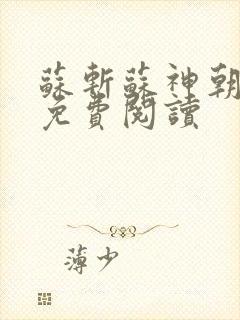 蘇斬蘇神朝
免費閱讀
薄少